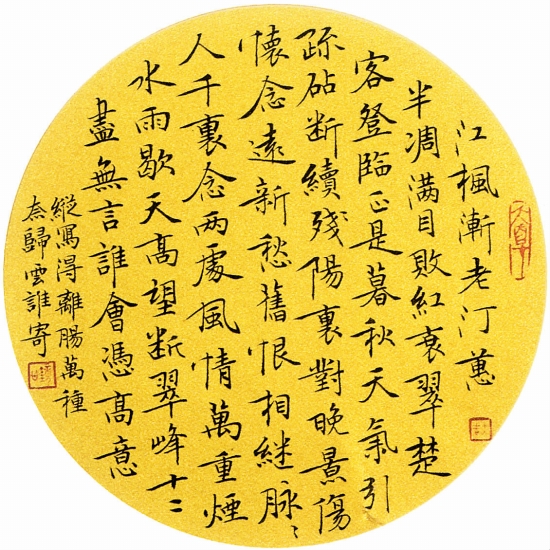 江楓漸老汀蕙
半凋满目敗紅衰翠楚
客登臨正是暮秋天氣引
疎砧断續殘陽裏對晚景傷
懷念遠新愁舊恨相継脉〻
人千裏念两處風情萬重煙
水雨歇天高望断翠峰十二
盡無言誰會憑高意
縱寫得離腸萬種
奈歸雲誰寄